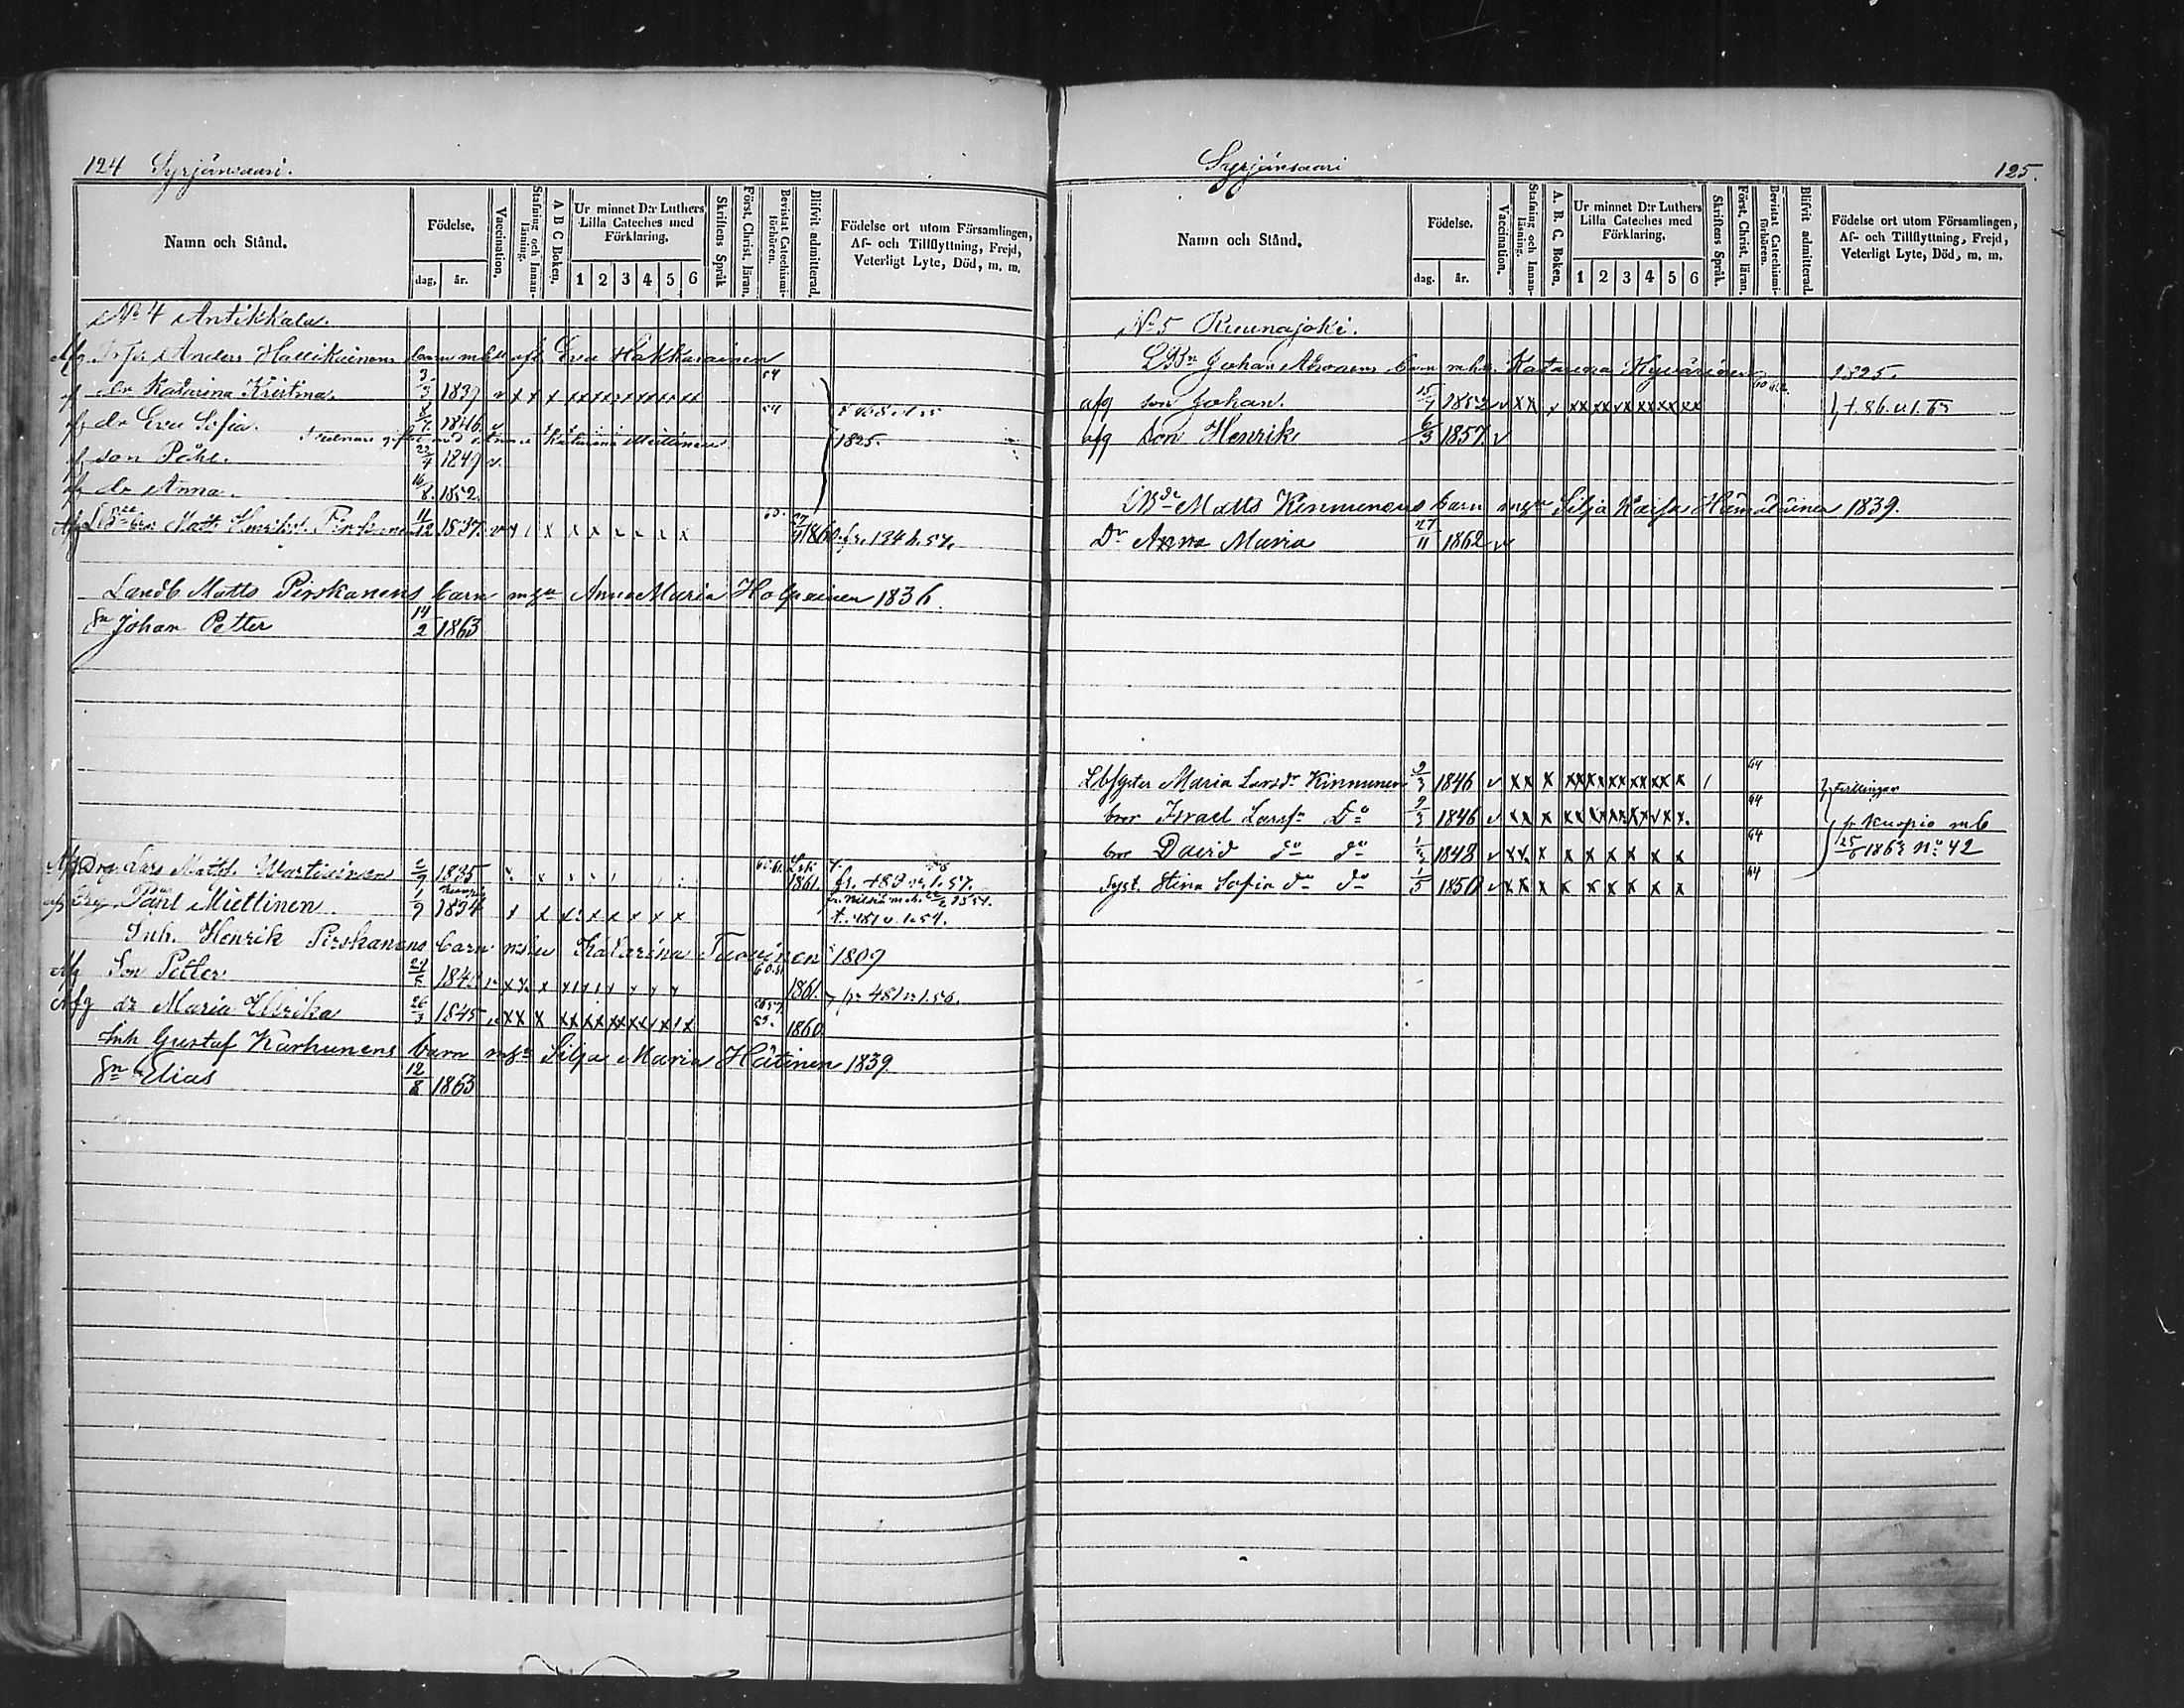 124 Syrjänsaari.
Namn och Stånd.
Födelse.
dag. år.
Vaccination.
Stafning och Innan-läsning.
A B C Boken.
Ur minnet D:r Luthers Lilla Cateches med Förklaring.
1 2 3 4 5 6
Skriftens Språk
Först. Christ. läran.
Bevistat Catechismi-förhören.
Blifvit admitterad.
Födelse ort utom Församlingen, Af- och Tillflyttning, Frejd, Veterligt Lyte, Död, m. m.
No 4 Antikkala.
Afg Anders Hallikainens barn Eva Hakkarainen
dr Katarina Kristina. 3/3 1839 v x x x xx xx x xx xx xx 54
dr Eva Sofia. 8/7 1846. v 54
gift med Katarina Miettinen 1825.
son Påhl. 23/4 1849 v.
dr Anna. 16/8. 1852.
Afg Matts Henriks. Pirskanen 11/12 1837. v x x x x x x x x 60. 1860. fr. 134 h. 57.
Landb Matts Pirskanens barn m hu Anna Maria Holopainen 1836.
Sn Johan Petter 14/2 1863
Afg Drg Lars Matts. Martikainen 2/9 1835 60.61. 1861. fr. 483 v. 1. 57.
afg Drg Påhl Miettinen 1/9 1834 x x x x x x x x
t. 481 v. 1. 54.
Inh. Henrik Pirskanens barn m hu Katarina Tuovinen 1809
Afg Son Petter 60.61 1861. fr 481 v. 1. 56.
Afg dr Maria Ulrika 26/3 1845 v xx x xx xx xx xx x x 1860.
Inh Gustaf Karhunens barn m hu Silja Maria Hätinen 1839
Sn Elias 12/8 1863
Syrjänsaari 125.
Namn och Stånd.
Födelse.
dag. år.
Vaccination.
Stafning och Innan-läsning.
A. B. C. Boken.
Ur minnet D:r Luthers Lilla Cateches med Förklaring.
1 2 3 4 5 6
Skriftens Språk.
Först. Christ. läran.
Bevistat Catechismi-förhören.
Blifvit admitterad.
Födelse ort utom Församlingen, Af- och Tillflyttning, Frejd, Veterligt Lyte, Död, m. m.
No 5 Ruunajoki.
Johan Ahosens barn m hu. Katarina Kyväräinen 1825.
afg son Johan. 15/7 1852 v xx x xx xx xx xx xx xx t. 86. v. 1. 65
afg son Henrik 6/3 1857 v
Matts Kinnunens barn Silja Kaisa Hämäläinen 1839.
Dr Anna Maria 27/11 1862 v
Maria Larsdr Kinnunen 9/3 1846 v xx x xx xx xx xx xx x / 64 tvillingar
bror Israel Larss Do 9/3 1846 v xx x xx xx xx xx xx x. 64 fr Kuopio m b
bror David do do 1848 v xx. x x x x x x x 64 25/6 1863 No 42
Syst. Stina Sofia do do 1/5 1850 v xx x x x x x x x 64